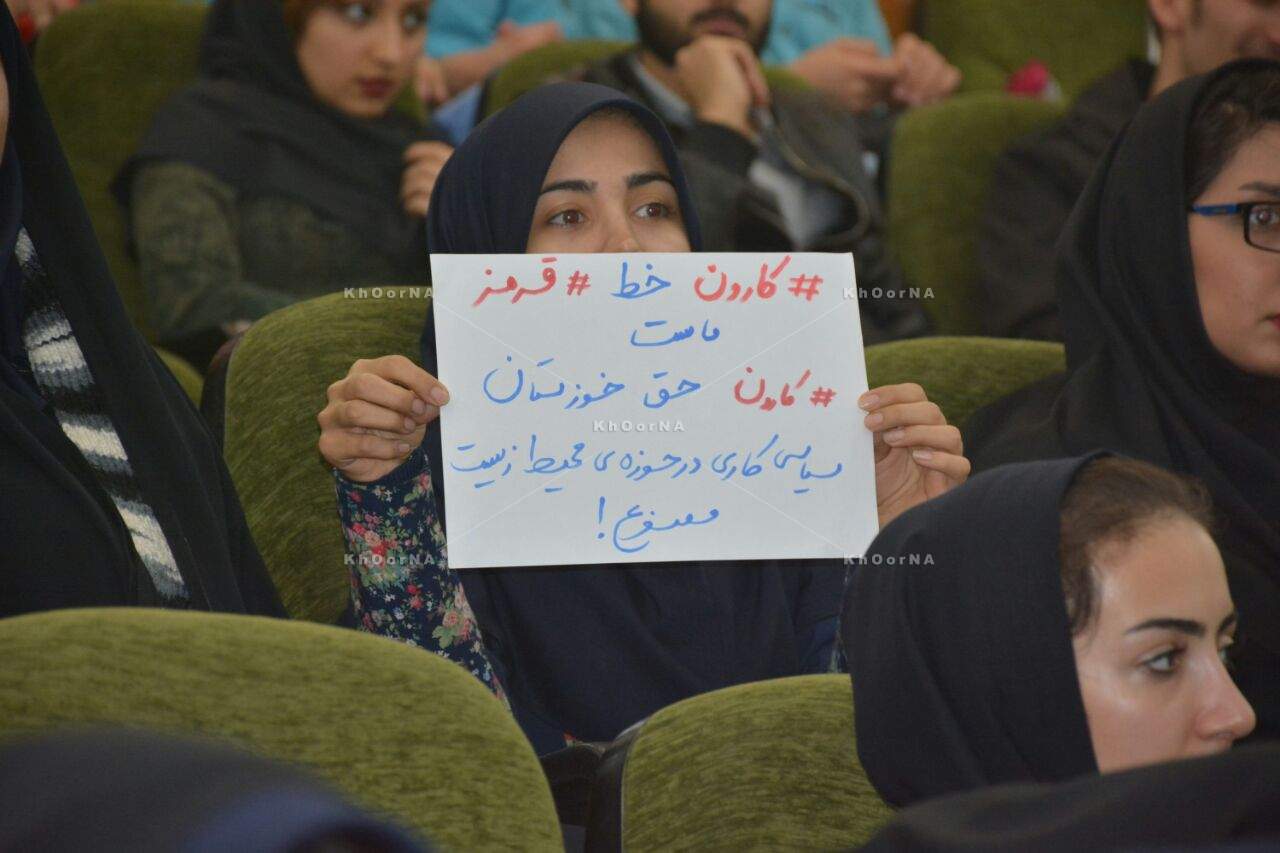 #کارون خط #قرمز
ماست
#کارون حق خوزستان
سیاسی کاری در حوزه ی محیط زیست
ممنوع!
KhOorNA
KhOorNA
KhOorNA
KhOorNA
KhOorNA